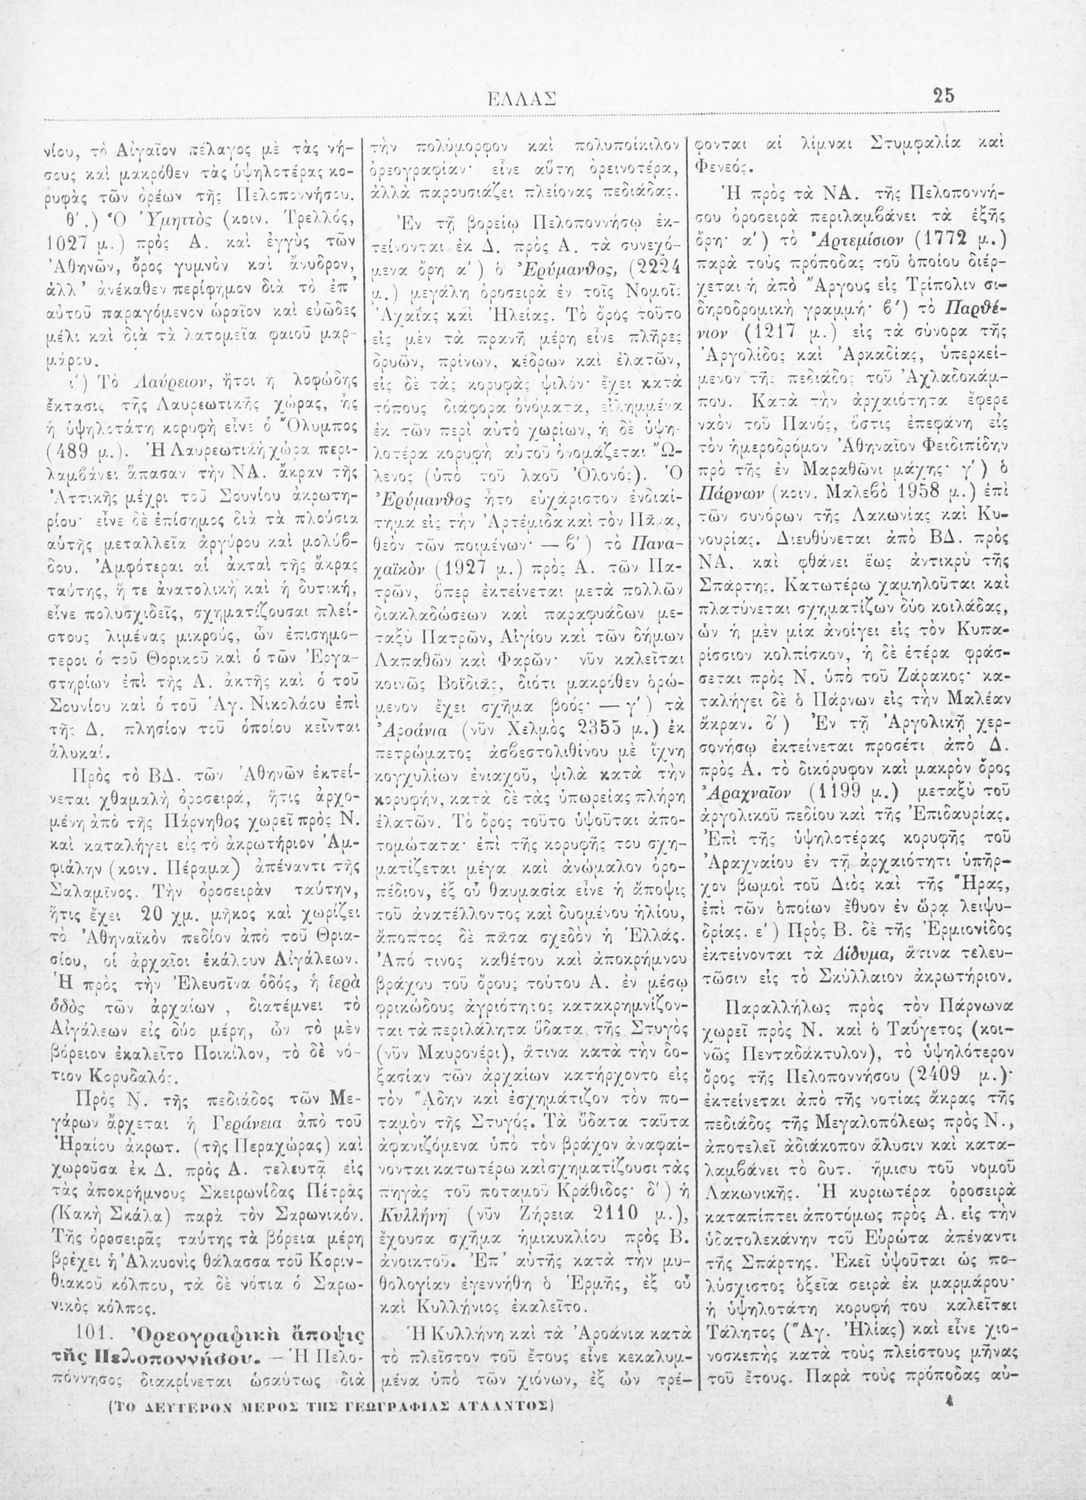 ΕΛΛΑΣ
25
νίου, τὸ Αἰγαῖον πέλαγος μὲ τὰς νή-
σους καὶ μακρόθεν τὰς ὑψηλοτέρας κο-
ρυφὰς τῶν ὀρέων τῆς Πελοποννήσου.
θ΄.) Ὁ Ὑμηττὸς (κοιν. Τρελλός,
1027 μ.) πρὸς Α. καὶ ἐγγὺς τῶν
Ἀθηνῶν, ὄρος γυμνὸν καὶ ἄνυδρον,
ἀλλ᾽ ἀνέκαθεν περίφημον διὰ τὸ ἐπ᾽
αὐτοῦ παραγόμενον ὡραῖον καὶ εὐῶδες
μέλι καὶ διὰ τὰ λατομεῖα φαιοῦ μαρ-
μάρου.
ι΄) Τὸ Λαύρειον, ἤτοι ἡ λοφώδης
ἔκτασις τῆς Λαυρεωτικῆς χώρας, ἧς
ἡ ὑψηλοτάτη κορυφὴ εἶνε ὁ Ὄλυμπος
(489 μ.). Ἡ Λαυρεωτικὴ χώρα περι-
λαμβάνει ἅπασαν τὴν ΝΑ. ἄκραν τῆς
Ἀττικῆς μέχρι τοῦ Σουνίου ἀκρωτη-
ρίου· εἶνε δὲ ἐπίσημος διὰ τὰ πλούσια
αὐτῆς μεταλλεῖα ἀργύρου καὶ μολύβ-
δου. Ἀμφότεραι αἱ ἀκταὶ τῆς ἄκρας
ταύτης, ἥ τε ἀνατολικὴ καὶ ἡ δυτική,
εἶνε πολυσχιδεῖς, σχηματίζουσαι πλεί-
στους λιμένας μικρούς, ὧν ἐπισημό-
τεροι ὁ τοῦ Θορικοῦ καὶ ὁ τῶν Ἐργα-
στηρίων ἐπὶ τῆς Α. ἀκτῆς καὶ ὁ τοῦ
Σουνίου καὶ ὁ τοῦ Ἁγ. Νικολάου ἐπὶ
τῆς Δ. πλησίον τοῦ ὁποίου κεῖνται
ἁλυκαί.
Πρὸς τὸ ΒΔ. τῶν Ἀθηνῶν ἐκτεί-
νεται χθαμαλὴ ὀροσειρά, ἥτις ἀρχο-
μένη ἀπὸ τῆς Πάρνηθος χωρεῖ πρὸς Ν.
καὶ καταλήγει εἰς τὸ ἀκρωτήριον Ἀμ-
φιάλην (κοιν. Πέραμα) ἀπέναντι τῆς
Σαλαμῖνος. Τὴν ὀροσειρὰν ταύτην,
ἥτις ἔχει 20 χμ. μῆκος καὶ χωρίζει
τὸ Ἀθηναϊκὸν πεδίον ἀπὸ τοῦ Θρια-
σίου, οἱ ἀρχαῖοι ἐκάλουν Αἰγάλεων.
Ἡ πρὸς τὴν Ἐλευσῖνα ὁδός, ἡ ἱερὰ
ὁδὸς τῶν ἀρχαίων, διατέμνει τὸ
Αἰγάλεων εἰς δύο μέρη, ὧν τὸ μὲν
βόρειον ἐκαλεῖτο Ποικίλον, τὸ δὲ νό-
τιον Κορυδαλός.
Πρὸς Ν. τῆς πεδιάδος τῶν Με-
γάρων ἄρχεται ἡ Γεράνεια ἀπὸ τοῦ
Ἡραίου ἀκρωτ. (τῆς Περαχώρας) καὶ
χωροῦσα ἐκ Δ. πρὸς Α. τελευτᾷ εἰς
τὰς ἀποκρήμνους Σκειρωνίδας Πέτρας
(Κακὴ Σκάλα) παρὰ τὸν Σαρωνικόν.
Τῆς ὀροσειρᾶς ταύτης τὰ βόρεια μέρη
βρέχει ἡ Ἀλκυονὶς θάλασσα τοῦ Κοριν-
θιακοῦ κόλπου, τὰ δὲ νότια ὁ Σαρω-
νικὸς κόλπος.
101. Ὀρεογραφικὴ ἄποψις
τῆς Πελοποννήσου. — Ἡ Πελο-
πόννησος διακρίνεται ὡσαύτως διὰ
τὴν πολύμορφον καὶ πολυποίκιλον
ὀρεογραφίαν· εἶνε αὕτη ὀρεινοτέρα,
ἀλλὰ παρουσιάζει πλείονας πεδιάδας.
Ἐν τῇ βορείῳ Πελοποννήσῳ ἐκ-
τείνονται ἐκ Δ. πρὸς Α. τὰ συνεχό-
μενα ὄρη α΄) ὁ Ἐρύμανθος, (2224
μ.) μεγάλη ὀροσειρὰ ἐν τοῖς Νομοῖς
Ἀχαΐας καὶ Ἠλείας. Τὸ ὄρος τοῦτο
εἰς μὲν τὰ πρανῆ μέρη εἶνε πλῆρες
δρυῶν, πρίνων, κέδρων καὶ ἐλατῶν,
εἰς δὲ τὰς κορυφὰς ψιλόν· ἔχει κατὰ
τόπους διάφορα ὀνόματα, εἰλημμένα
ἐκ τῶν περὶ αὐτὸ χωρίων, ἡ δὲ ὑψη-
λοτέρα κορυφὴ αὐτοῦ ὀνομάζεται Ὤ-
λενος (ὑπὸ τοῦ λαοῦ Ὀλονός). Ὁ
Ἐρύμανθος ἦτο εὐχάριστον ἐνδιαί-
τημα εἰς τὴν Ἀρτέμιδα καὶ τὸν Πᾶνα,
θεὸν τῶν ποιμένων· — β΄) τὸ Πανα-
χαϊκὸν (1927 μ.) πρὸς Α. τῶν Πα-
τρῶν, ὅπερ ἐκτείνεται μετὰ πολλῶν
διακλαδώσεων καὶ παραφυάδων με-
ταξὺ Πατρῶν, Αἰγίου καὶ τῶν δήμων
Λαπαθῶν καὶ Φαρῶν· νῦν καλεῖται
κοινῶς Βοϊδιᾶς, διότι μακρόθεν ὁρώ-
μενον ἔχει σχῆμα βοός· — γ΄) τὰ
Ἀροάνια (νῦν Χελμὸς 2355 μ.) ἐκ
πετρώματος ἀσβεστολιθίνου μὲ ἴχνη
κογχυλίων ἐνιαχοῦ, ψιλὰ κατὰ τὴν
κορυφήν, κατὰ δὲ τὰς ὑπωρείας πλήρη
ἐλατῶν. Τὸ ὄρος τοῦτο ὑψοῦται ἀπο-
τομώτατα· ἐπὶ τῆς κορυφῆς του σχη-
ματίζεται μέγα καὶ ἀνώμαλον ὀρο-
πέδιον, ἐξ οὗ θαυμασία εἶνε ἡ ἄποψις
τοῦ ἀνατέλλοντος καὶ δυομένου ἡλίου,
ἄποπτος δὲ πᾶσα σχεδὸν ἡ Ἑλλάς.
Ἀπό τινος καθέτου καὶ ἀποκρήμνου
βράχου τοῦ ὄρους τούτου Α. ἐν μέσῳ
φρικώδους ἀγριότητος κατακρημνίζον-
ται τὰ περιλάλητα ὕδατα τῆς Στυγὸς
(νῦν Μαυρονέρι), ἅτινα κατὰ τὴν δο-
ξασίαν τῶν ἀρχαίων κατήρχοντο εἰς
τὸν Ἅδην καὶ ἐσχημάτιζον τὸν πο-
ταμὸν τῆς Στυγός. Τὰ ὕδατα ταῦτα
ἀφανιζόμενα ὑπὸ τὸν βράχον ἀναφαί-
νονται κατωτέρω καὶ σχηματίζουσι τὰς
πηγὰς τοῦ ποταμοῦ Κράθιδος· δ΄) ἡ
Κυλλήνη (νῦν Ζήρεια 2110 μ.),
ἔχουσα σχῆμα ἡμικυκλίου πρὸς Β.
ἀνοικτοῦ. Ἐπ᾽ αὐτῆς κατὰ τὴν μυ-
θολογίαν ἐγεννήθη ὁ Ἑρμῆς, ἐξ οὗ
καὶ Κυλλήνιος ἐκαλεῖτο.
Ἡ Κυλλήνη καὶ τὰ Ἀροάνια κατὰ
τὸ πλεῖστον τοῦ ἔτους εἶνε κεκαλυμ-
μένα ὑπὸ τῶν χιόνων, ἐξ ὧν τρέ-
φονται αἱ λίμναι Στυμφαλία καὶ
Φενεός.
Ἡ πρὸς τὰ ΝΑ. τῆς Πελοποννή-
σου ὀροσειρὰ περιλαμβάνει τὰ ἑξῆς
ὄρη· α΄) τὸ Ἀρτεμίσιον (1772 μ.)
παρὰ τοὺς πρόποδας τοῦ ὁποίου διέρ-
χεται ἡ ἀπὸ Ἄργους εἰς Τρίπολιν σι-
δηροδρομικὴ γραμμή· β΄) τὸ Παρθέ-
νιον (1217 μ.) εἰς τὰ σύνορα τῆς
Ἀργολίδος καὶ Ἀρκαδίας, ὑπερκεί-
μενον τῆς πεδιάδος τοῦ Ἀχλαδοκάμ-
που. Κατὰ τὴν ἀρχαιότητα ἔφερε
ναὸν τοῦ Πανός, ὅστις ἐπεφάνη εἰς
τὸν ἡμεροδρόμον Ἀθηναῖον Φειδιπίδην
πρὸ τῆς ἐν Μαραθῶνι μάχης· γ΄) ὁ
Πάρνων (κοιν. Μαλεβὸ 1958 μ.) ἐπὶ
τῶν συνόρων τῆς Λακωνίας καὶ Κυ-
νουρίας. Διευθύνεται ἀπὸ ΒΔ. πρὸς
ΝΑ. καὶ φθάνει ἕως ἀντικρὺ τῆς
Σπάρτης. Κατωτέρω χαμηλοῦται καὶ
πλατύνεται σχηματίζων δύο κοιλάδας,
ὧν ἡ μὲν μία ἀνοίγει εἰς τὸν Κυπα-
ρίσσιον κολπίσκον, ἡ δὲ ἑτέρα φράσ-
σεται πρὸς Ν. ὑπὸ τοῦ Ζάρακος· κα-
ταλήγει δὲ ὁ Πάρνων εἰς τὴν Μαλέαν
ἄκραν. δ΄) Ἐν τῇ Ἀργολικῇ χερ-
σονήσῳ ἐκτείνεται προσέτι ἀπὸ Δ.
πρὸς Α. τὸ δικόρυφον καὶ μακρὸν ὄρος
Ἀραχναῖον (1199 μ.) μεταξὺ τοῦ
ἀργολικοῦ πεδίου καὶ τῆς Ἐπιδαυρίας.
Ἐπὶ τῆς ὑψηλοτέρας κορυφῆς τοῦ
Ἀραχναίου ἐν τῇ ἀρχαιότητι ὑπῆρ-
χον βωμοὶ τοῦ Διὸς καὶ τῆς Ἥρας,
ἐπὶ τῶν ὁποίων ἔθυον ἐν ὥρᾳ λειψυ-
δρίας. ε΄) Πρὸς Β. δὲ τῆς Ἑρμιονίδος
ἐκτείνονται τὰ Δίδυμα, ἅτινα τελευ-
τῶσιν εἰς τὸ Σκύλλαιον ἀκρωτήριον.
Παραλλήλως πρὸς τὸν Πάρνωνα
χωρεῖ πρὸς Ν. καὶ ὁ Ταΰγετος (κοι-
νῶς Πενταδάκτυλον), τὸ ὑψηλότερον
ὄρος τῆς Πελοποννήσου (2409 μ.)·
ἐκτείνεται ἀπὸ τῆς νοτίας ἄκρας τῆς
πεδιάδος τῆς Μεγαλοπόλεως πρὸς Ν.,
ἀποτελεῖ ἀδιάκοπον ἅλυσιν καὶ κατα-
λαμβάνει τὸ δυτ. ἥμισυ τοῦ νομοῦ
Λακωνικῆς. Ἡ κυριωτέρα ὀροσειρὰ
καταπίπτει ἀποτόμως πρὸς Α. εἰς τὴν
ὑδατολεκάνην τοῦ Εὐρώτα ἀπέναντι
τῆς Σπάρτης. Ἐκεῖ ὑψοῦται ὡς πο-
λύσχιστος ὀξεῖα σειρὰ ἐκ μαρμάρου·
ἡ ὑψηλοτάτη κορυφή του καλεῖται
Τάλητος (Ἅγ. Ἠλίας) καὶ εἶνε χιο-
νοσκεπὴς κατὰ τοὺς πλείστους μῆνας
τοῦ ἔτους. Παρὰ τοὺς πρόποδας αὐ-
(ΤΟ ΔΕΥΤΕΡΟΝ ΜΕΡΟΣ ΤΗΣ ΓΕΩΓΡΑΦΙΑΣ ΑΤΛΑΝΤΟΣ)
4